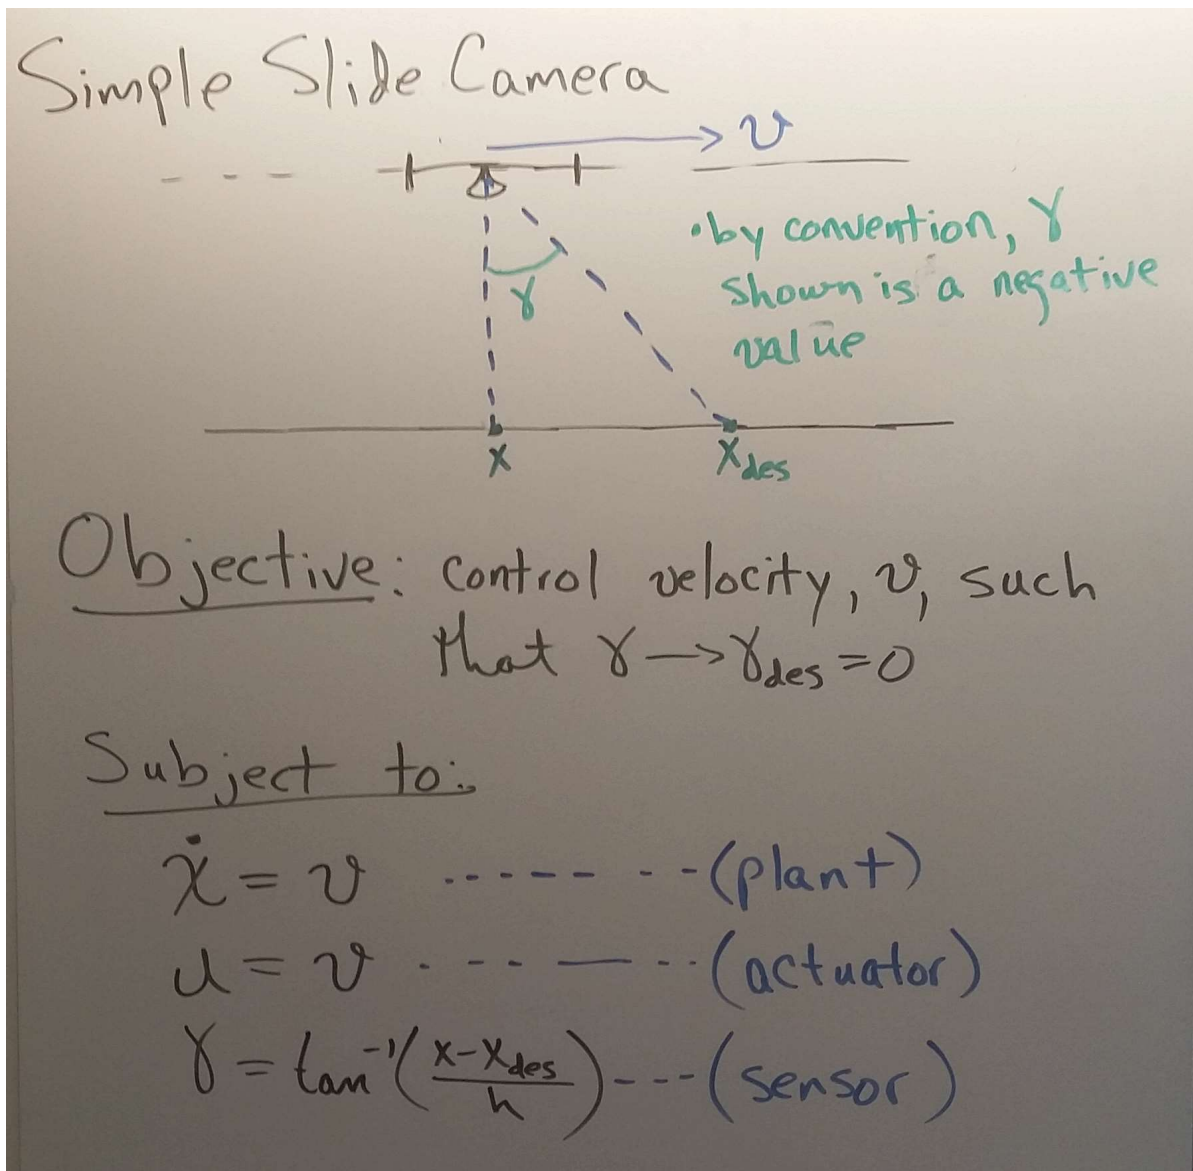 Simple Slide Camera
v
•by convention, γ
shown is a negative
value
γ
x
x_des
Objective: control velocity, v, such
that γ → γ_des = 0
Subject to:
ẋ = v ------- --(plant)
u = v - --- — --(actuator)
γ = tan⁻¹((x-x_des)/h)---(sensor)